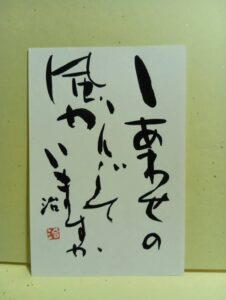 しあわせの
風かんじて
いますか
治